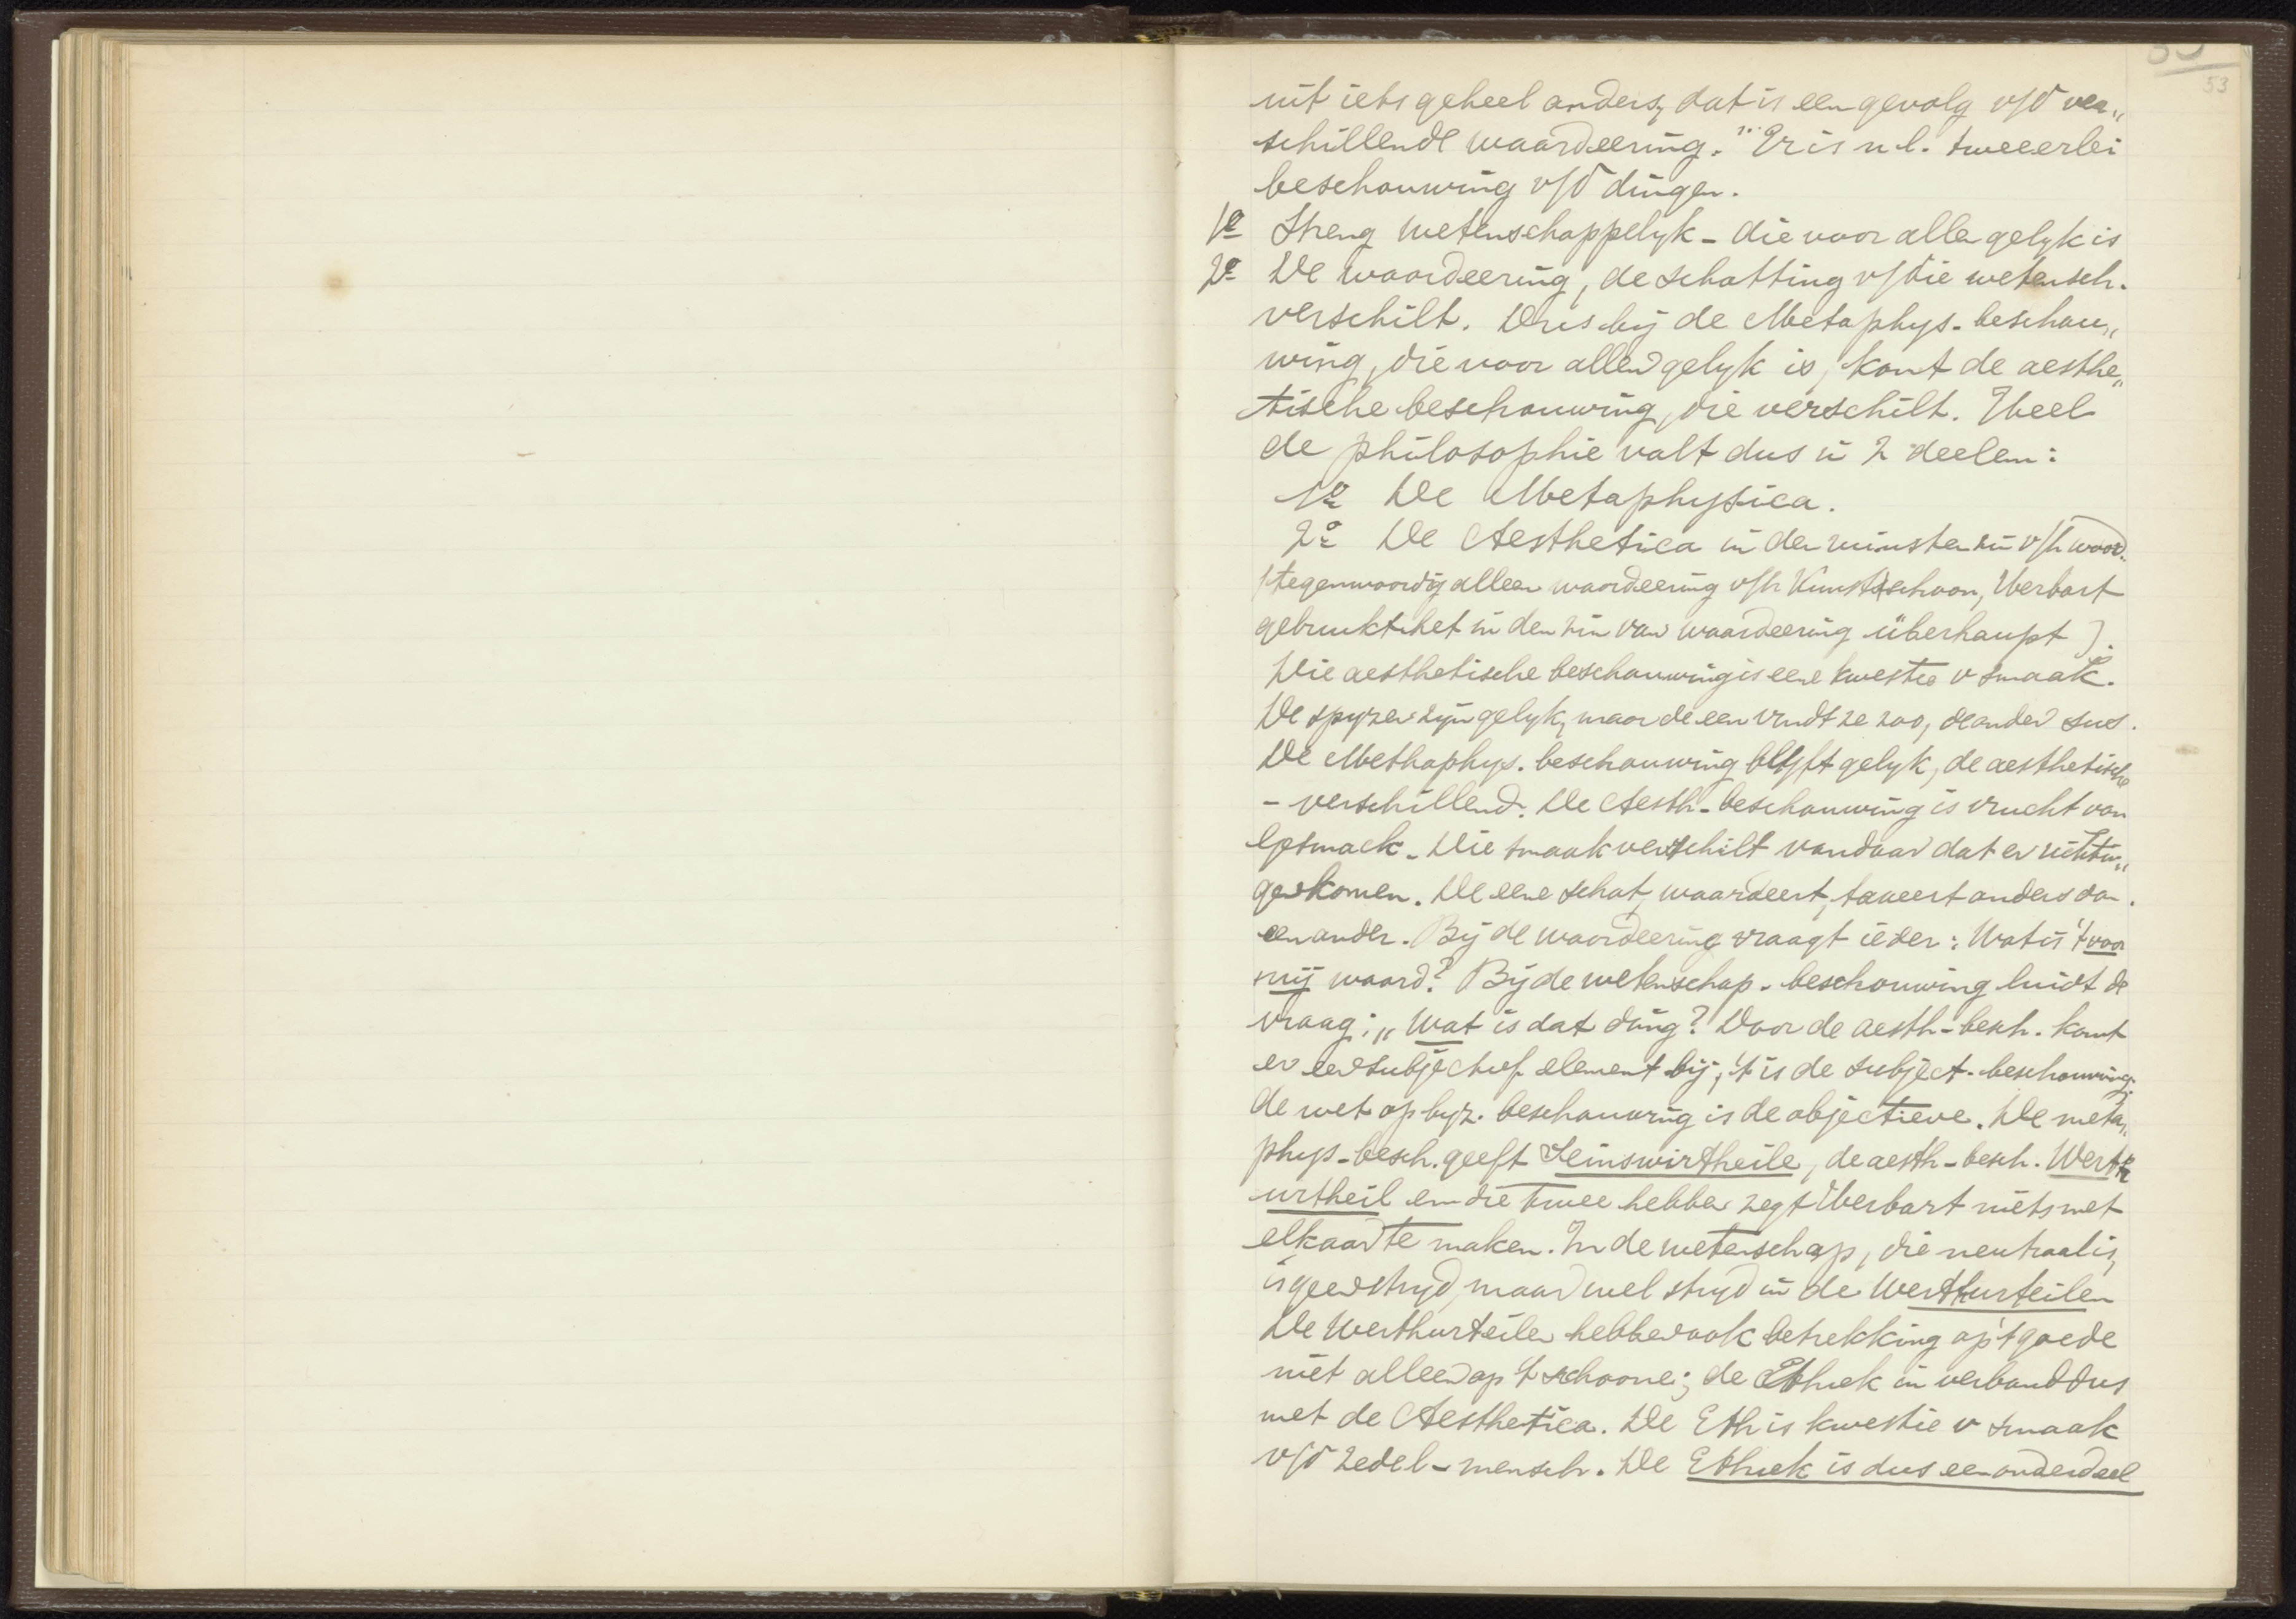 53
uit iets geheel anders, dat is een gevolg v/d ver„
schillende waardeering. Er is n.l. tweeerlei
beschouwing v/d dingen.
1e Streng wetenschappelyk - die voor allen gelyk is
2e De waardeering, de schatting v/die wetensch.
verschilt. Dus bij de Metaphys. beschou„
wing, die voor allen gelyk is, komt de aesthe„
tische beschouwing, die verschilt. Heel
de philosophie valt dus in 2 deelen:
1o De Metaphysica.
2o De Aesthetica in den zin v/h woord.
(tegenwoordig alleen waardeering v/h Kunstschoon, Herbart
gebruikt het in den zin van waardeering überhaupt).
Die aesthetische beschouwing is eene kwestie v smaak.
De spyzen zijn gelyk, maar de een vindt ze zoo, de ander dus.
De Methaphys. beschouwing blyft gelyk, de aesthetische
- verschillend. De Aesth. beschouwing is vrucht van
Gesmack. Die smaak verschilt vandaar dat er richtin„
gen komen. De eene schat, waardeert, taxeert anders dan
een ander. Bij de waardeering vraagt ieder: Wat is 't voor
mij waard? Bij de wetenschap. beschouwing luidt de
vraag: „Wat is dat ding? Door de aesth. besch. komt
er een subjectief element bij, 't is de subject. beschouwing.
de metaphyz. beschouwing is de objectieve. De meta„
phys. besch. geeft Seinsurtheile, de aesth. besch. Werth
urtheil en die twee hebben zegt Herbart niets met
elkaar te maken. In de wetenschap, die neutraal is,
is geen stryd, maar wel stryd in de Werthurteilen
De Werthurteilen hebben ook betrekking op 't goede
niet alleen op 't schoone; de Ethiek in verband dus
met de Aesthetica. De Eth is kwestie v smaak
v/d zedel. mensch. De Ethiek is dus een onderdeel